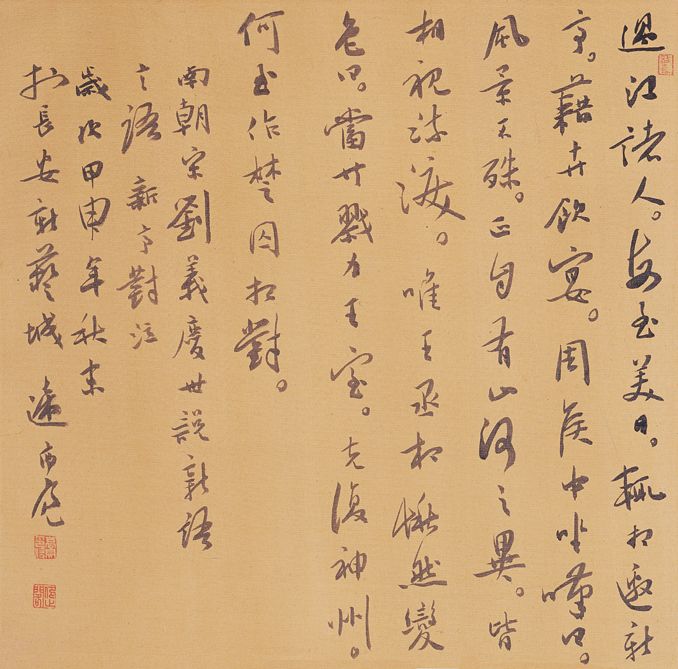 過江諸人。每至美日。輒相邀新
亭。藉卉飲宴。周侯中坐嘆曰。
風景不殊。正自有山河之異。皆
相視流淚。唯王丞相愀然變
色曰。當共戮力王室。克復神州。
何至作楚囚相對。
南朝宋劉義慶世說新語
之語 新亭對泣
歲次甲申年秋書
於長安新藝城